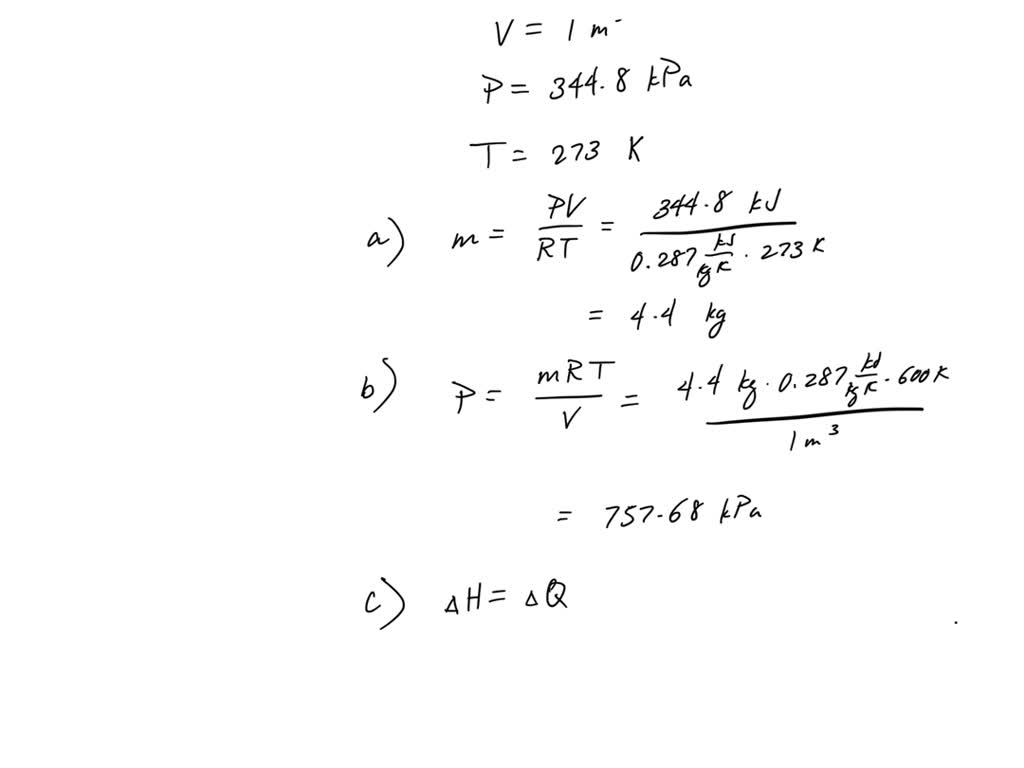 V = 1 m
P = 344.8 kPa
T = 273 K
a) m = PV/RT = 344.8 kJ / 0.287 kJ/kg K · 273 K
= 4.4 kg
b) P = mRT/V = 4.4 kg · 0.287 kJ/kg K · 600 K / 1 m³
= 757.68 kPa
c) ΔH = ΔQ